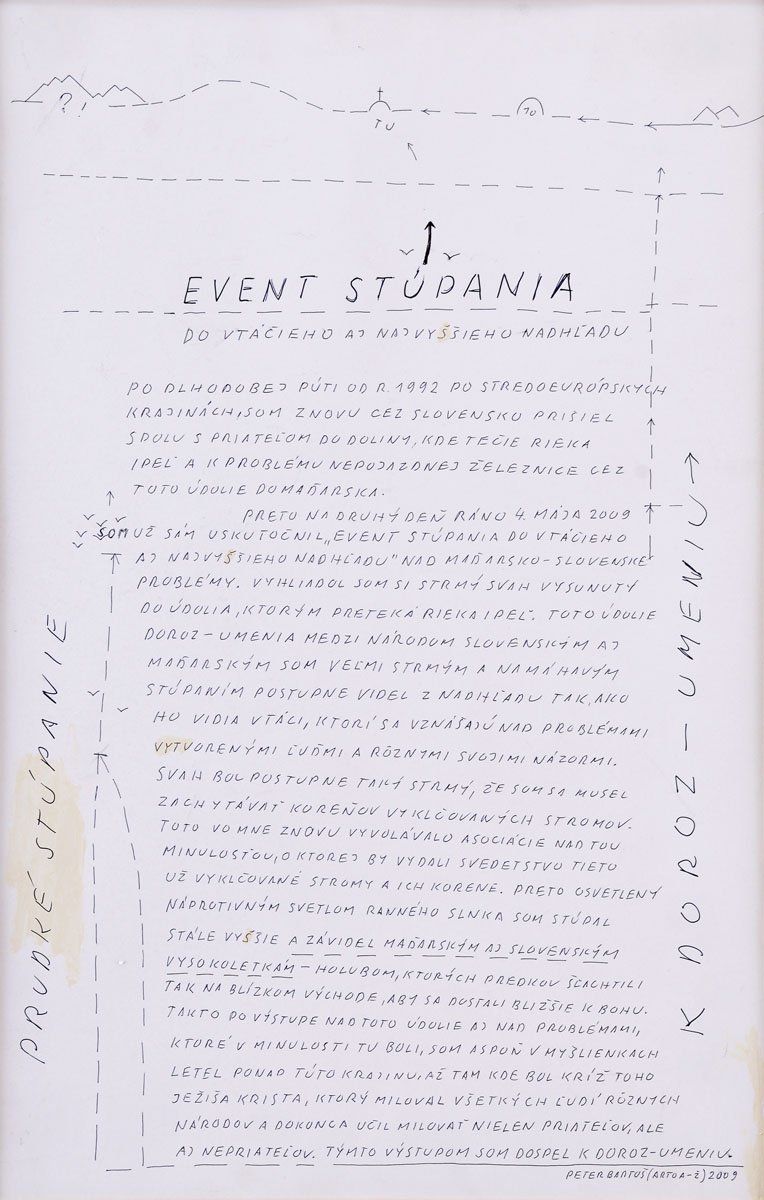 ?!
TU
TU
EVENT STÚPANIA
DO VTÁČIEHO AJ NAJVYŠŠIEHO NADHĽADU
PO DLHODOBEJ PÚTI OD R. 1992 PO STREDOEURÓPSKYCH
KRAJINÁCH, SOM ZNOVU CEZ SLOVENSKO PRIŠIEL
SPOLU S PRIATEĽOM DO DOLINY, KDE TEČIE RIEKA
IPEĽ A K PROBLÉMU NEPOJAZDNEJ ŽELEZNICE CEZ
TOTO ÚDOLIE DO MAĎARSKA.
PRETO NA DRUHÝ DEŇ RÁNO 4. MÁJA 2009
SOM UŽ SÁM USKUTOČNIL „EVENT STÚPANIA DO VTÁČIEHO
AJ NAJVYŠŠIEHO NADHĽADU" NAD MAĎARSKO-SLOVENSKÉ
PROBLÉMY. VYHLIADOL SOM SI STRMÝ SVAH VYSUNUTÝ
DO ÚDOLIA, KTORÝM PRETEKÁ RIEKA IPEĽ. TOTO ÚDOLIE
DOROZ-UMENIA MEDZI NÁRODOM SLOVENSKÝM AJ
MAĎARSKÝM SOM VEĽMI STRMÝM A NAMÁHAVÝM
STÚPANÍM POSTUPNE VIDEL Z NADHĽADU TAK, AKO
HO VIDIA VTÁCI, KTORÍ SA VZNÁŠAJÚ NAD PROBLÉMAMI
VYTVORENÝMI ĽUĎMI A RÔZNYMI SVOJIMI NÁZORMI.
SVAH BOL POSTUPNE TAKÝ STRMÝ, ŽE SOM SA MUSEL
ZACHYTÁVAŤ KOREŇOV VYKLČOVANÝCH STROMOV.
TOTO VO MNE ZNOVU VYVOLÁVALO ASOCIÁCIE NAD TOU
MINULOSŤOU, O KTOREJ BY VYDALI SVEDETSTVO TIETO
UŽ VYKLČOVANÉ STROMY A ICH KORENE. PRETO OSVETLENÝ
NÁPROTIVNÝM SVETLOM RANNÉHO SLNKA SOM STÚPAL
STÁLE VYŠŠIE A ZÁVIDEL MAĎARSKÝM AJ SLOVENSKÝM
VYSOKOLETKÁM - HOLUBOM, KTORÝCH PREDKOV ŠĽACHTILI
TAK NA BLÍZKOM VÝCHODE, ABY SA DOSTALI BLIŽŠIE K BOHU.
TAKTO PO VÝSTUPE NAD TOTO ÚDOLIE AJ NAD PROBLÉMAMI,
KTORÉ V MINULOSTI TU BOLI, SOM ASPOŇ V MYŠLIENKACH
LETEL PONAD TÚTO KRAJINU, AŽ TAM KDE BOL KRÍŽ TOHO
JEŽIŠA KRISTA, KTORÝ MILOVAL VŠETKÝCH ĽUDÍ RÔZNYCH
NÁRODOV A DOKONCA UČIL MILOVAŤ NIELEN PRIATEĽOV, ALE
AJ NEPRIATEĽOV. TÝMTO VÝSTUPOM SOM DOSPEL K DOROZ-UMENIU.
PETER BARTOŠ (ARTOA-Ž) 2009
PRUDKÉ STÚPANIE
K DOROZ-UMENIU